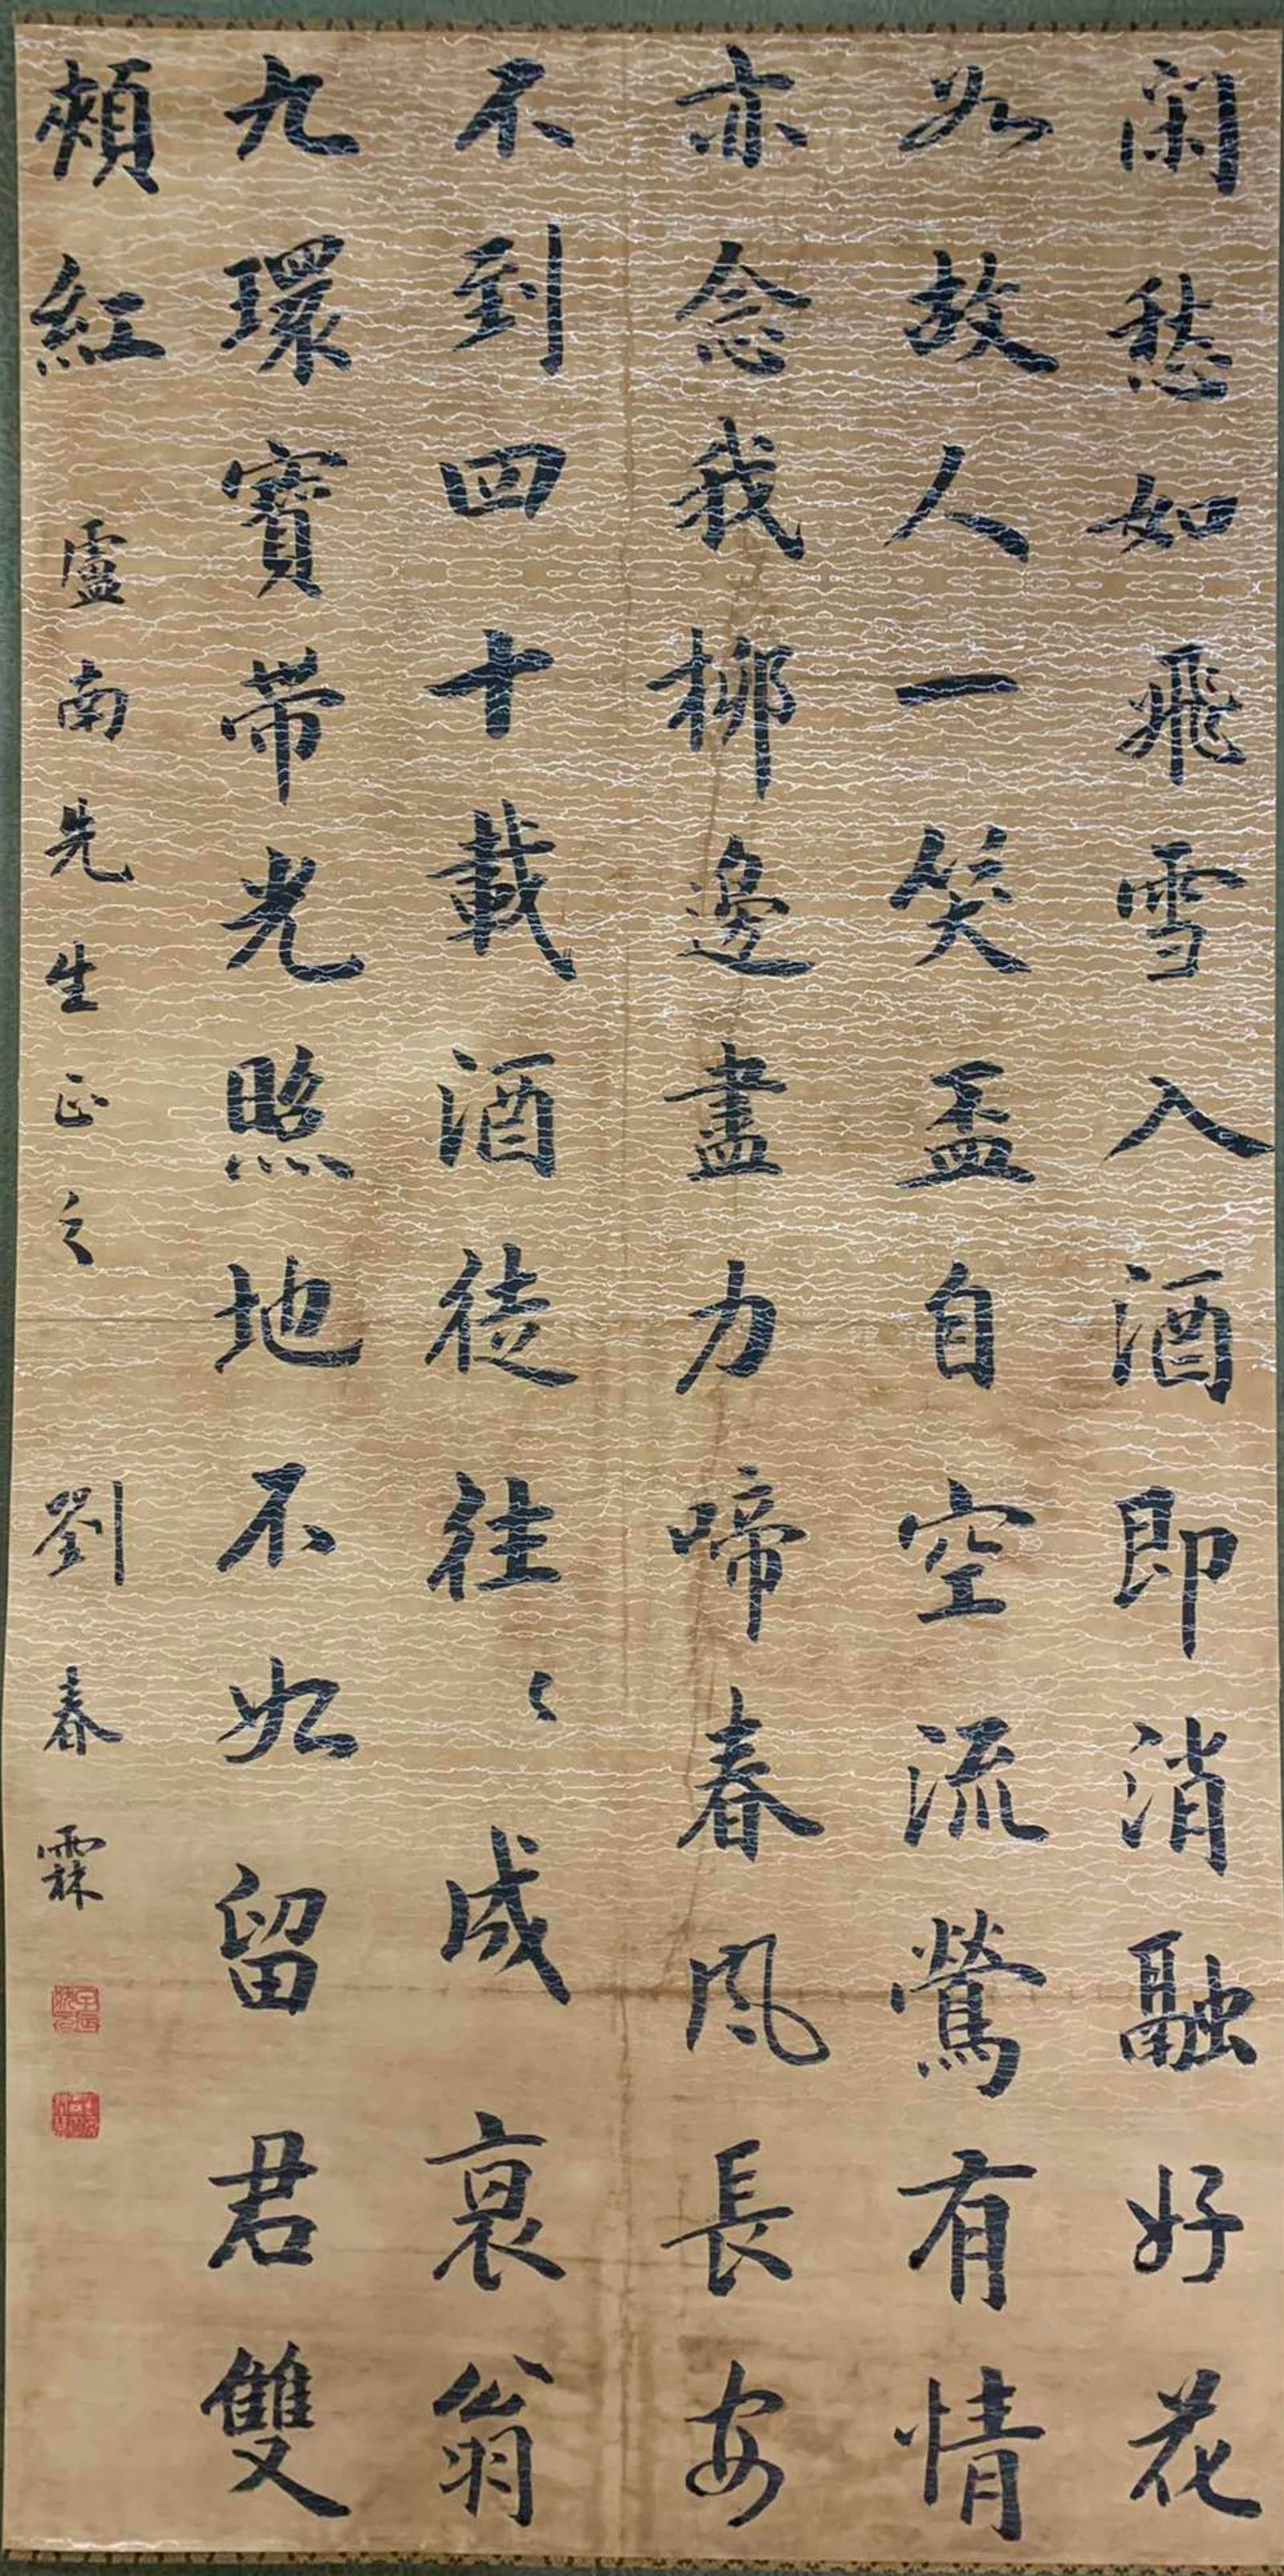 閑愁如飛雪入酒即消融好花
如故人一笑盃自空流鶯有情
亦念我柳邊盡力啼春風長安
不到四十載酒徒往〻成衰翁
九環寶帶光照地不如留君雙
頰紅
盧南先生正之
劉春霖